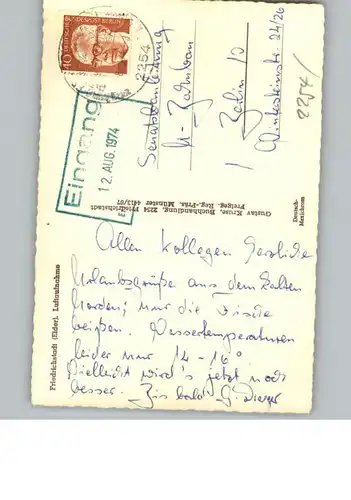 DEUTSCHE BUNDESPOST BERLIN
40
2254
Eingang
12. AUG. 1974
Senatskanzlei
1 Berlin 10
24/26
2254
Gustav Kruse, Buchhandlung, 2254 Friedrichstadt
Freigeg. Reg.-Präs. Münster 4413/67
Friedrichstadt (Eider), Luftaufnahme
Allen Kollegen herzliche
Urlaubsgrüße aus dem kalten
Norden; nur die Fische
beißen. Wassertemperaturen
leider nur 14 - 16°.
Vielleicht wird's jetzt noch
besser. Bis bald